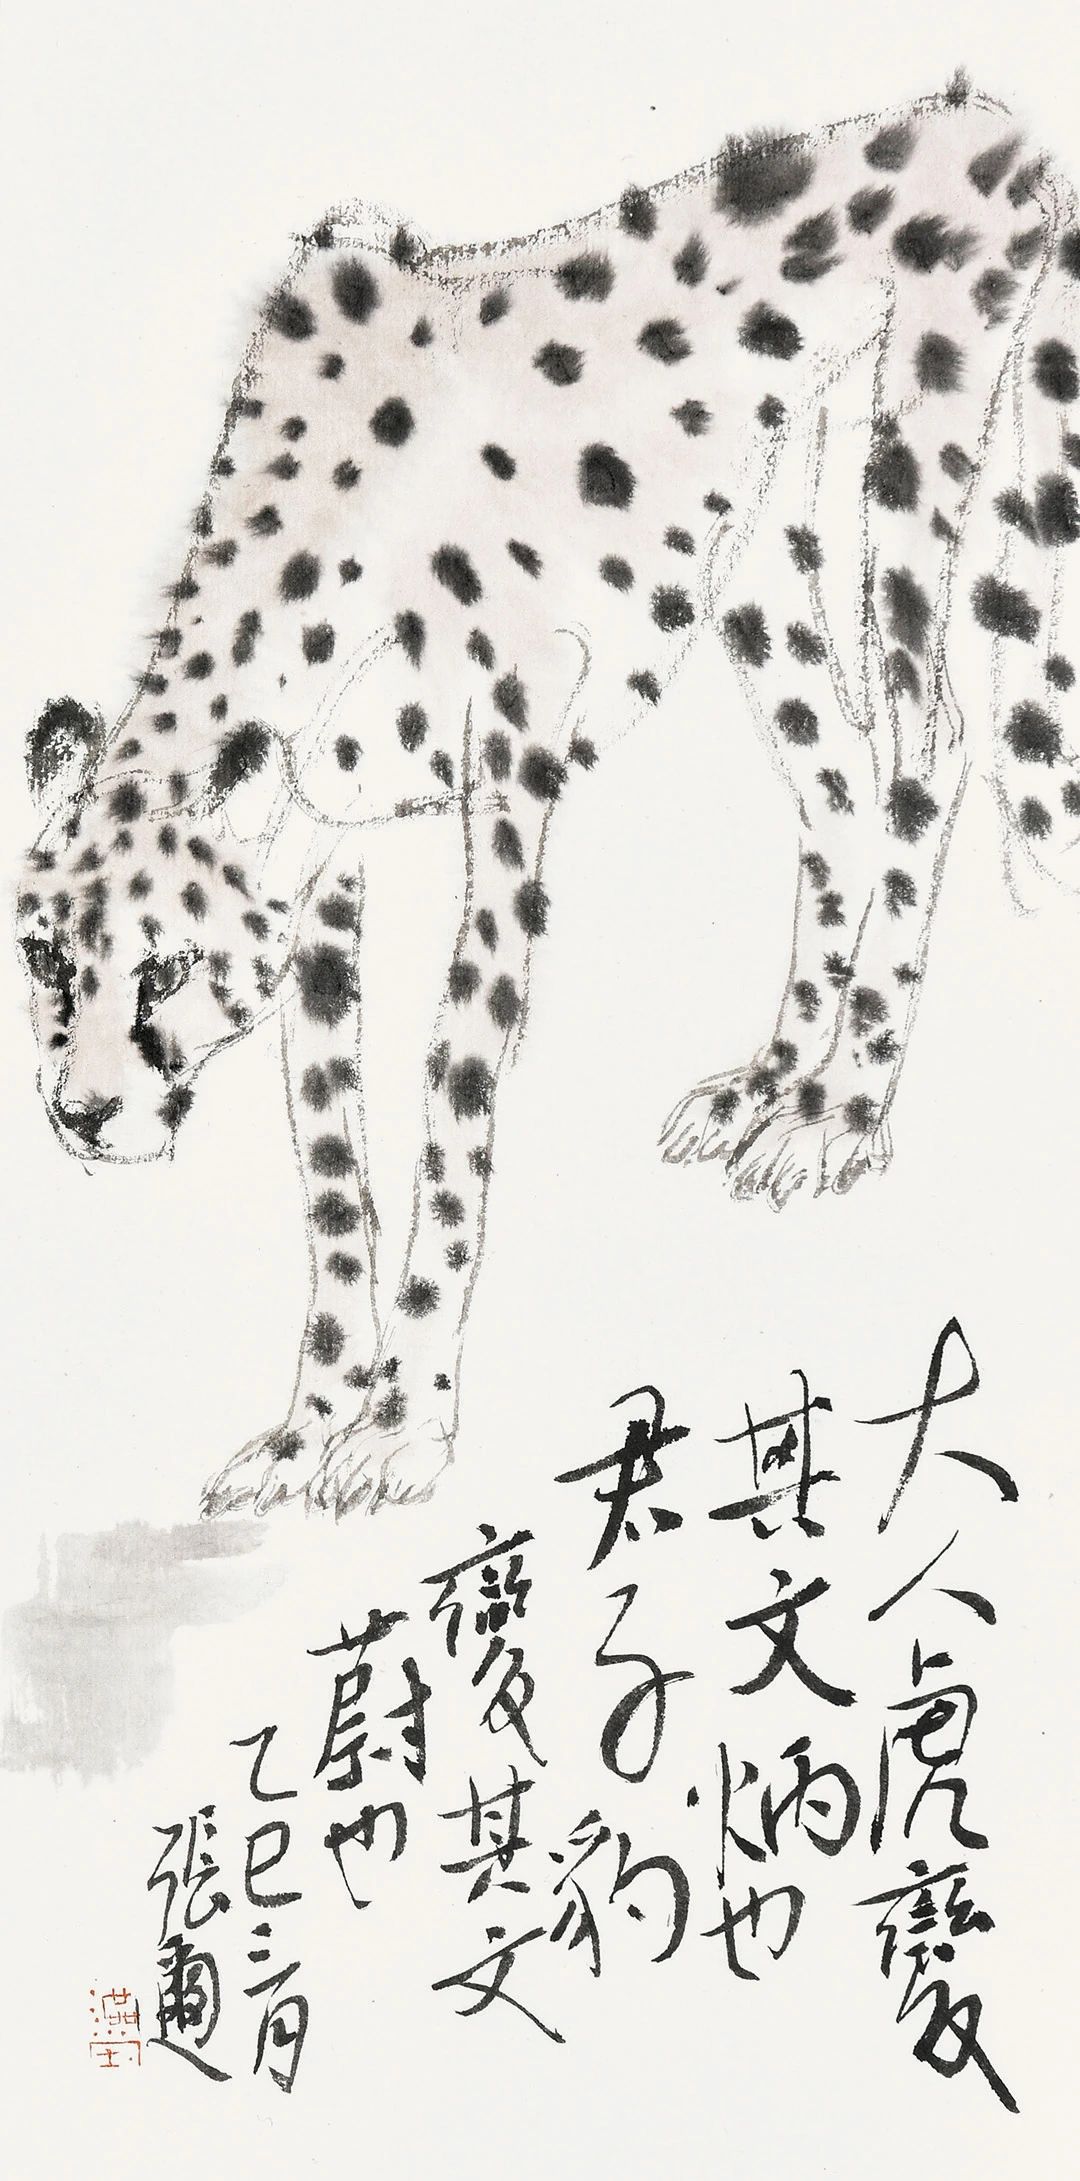 大人虎變
其文炳也
君子豹
變其文
蔚也
乙巳三月
張邇